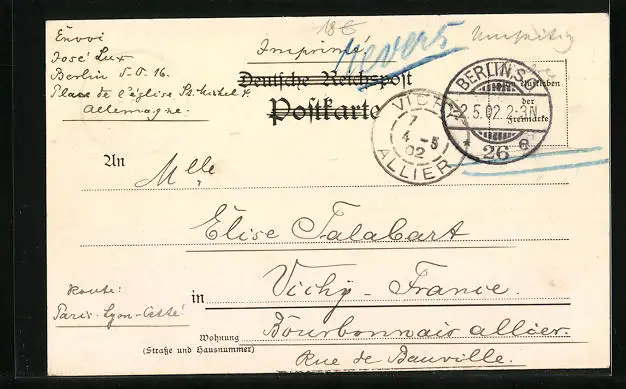 Envoi
José Lux
Berlin S.O. 16.
Place de l'église St. Michel
Allemagne.
18 €
Imprimé
Nevers
Deutsche Reichspost
Postkarte
BERLIN,S.
2.5.02.2-3N
* 26 e
Aufkleben
der
Freimarke
VICHY
7
4 - 5
02
ALLIER
An Mlle
Elise Talabart
Route:
Paris-Lyon-Cette
in Vichy - France.
Wohnung Bourbonnais allier.
(Straße und Hausnummer) Rue de Bauville.